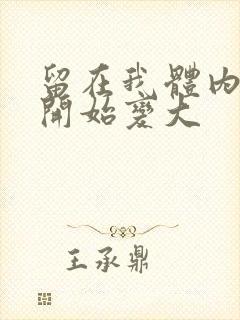 留在我體內
開始變大
王承鼎